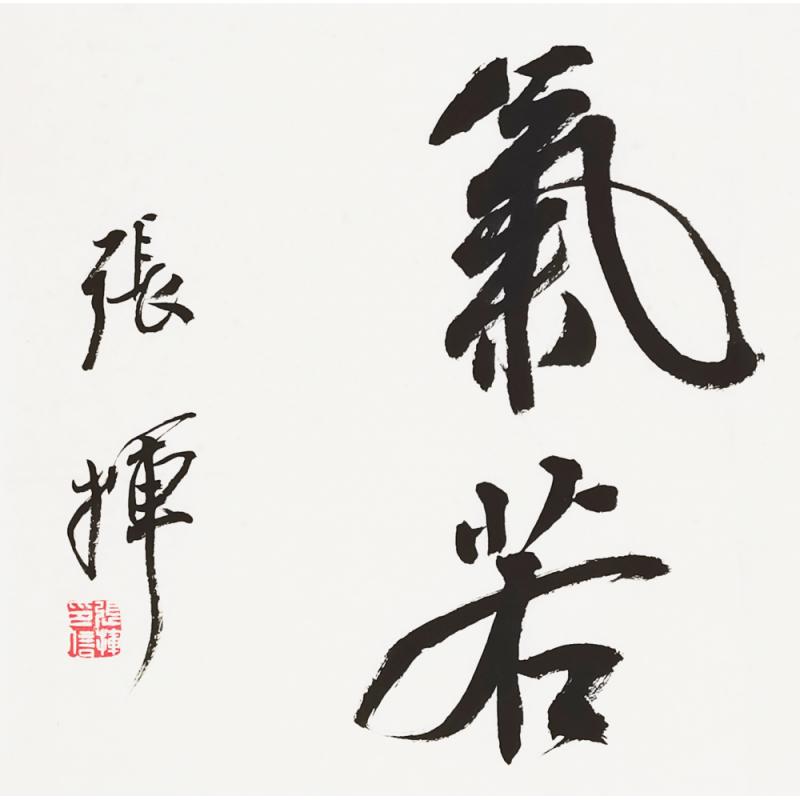 氣若
張揮
張揮之信